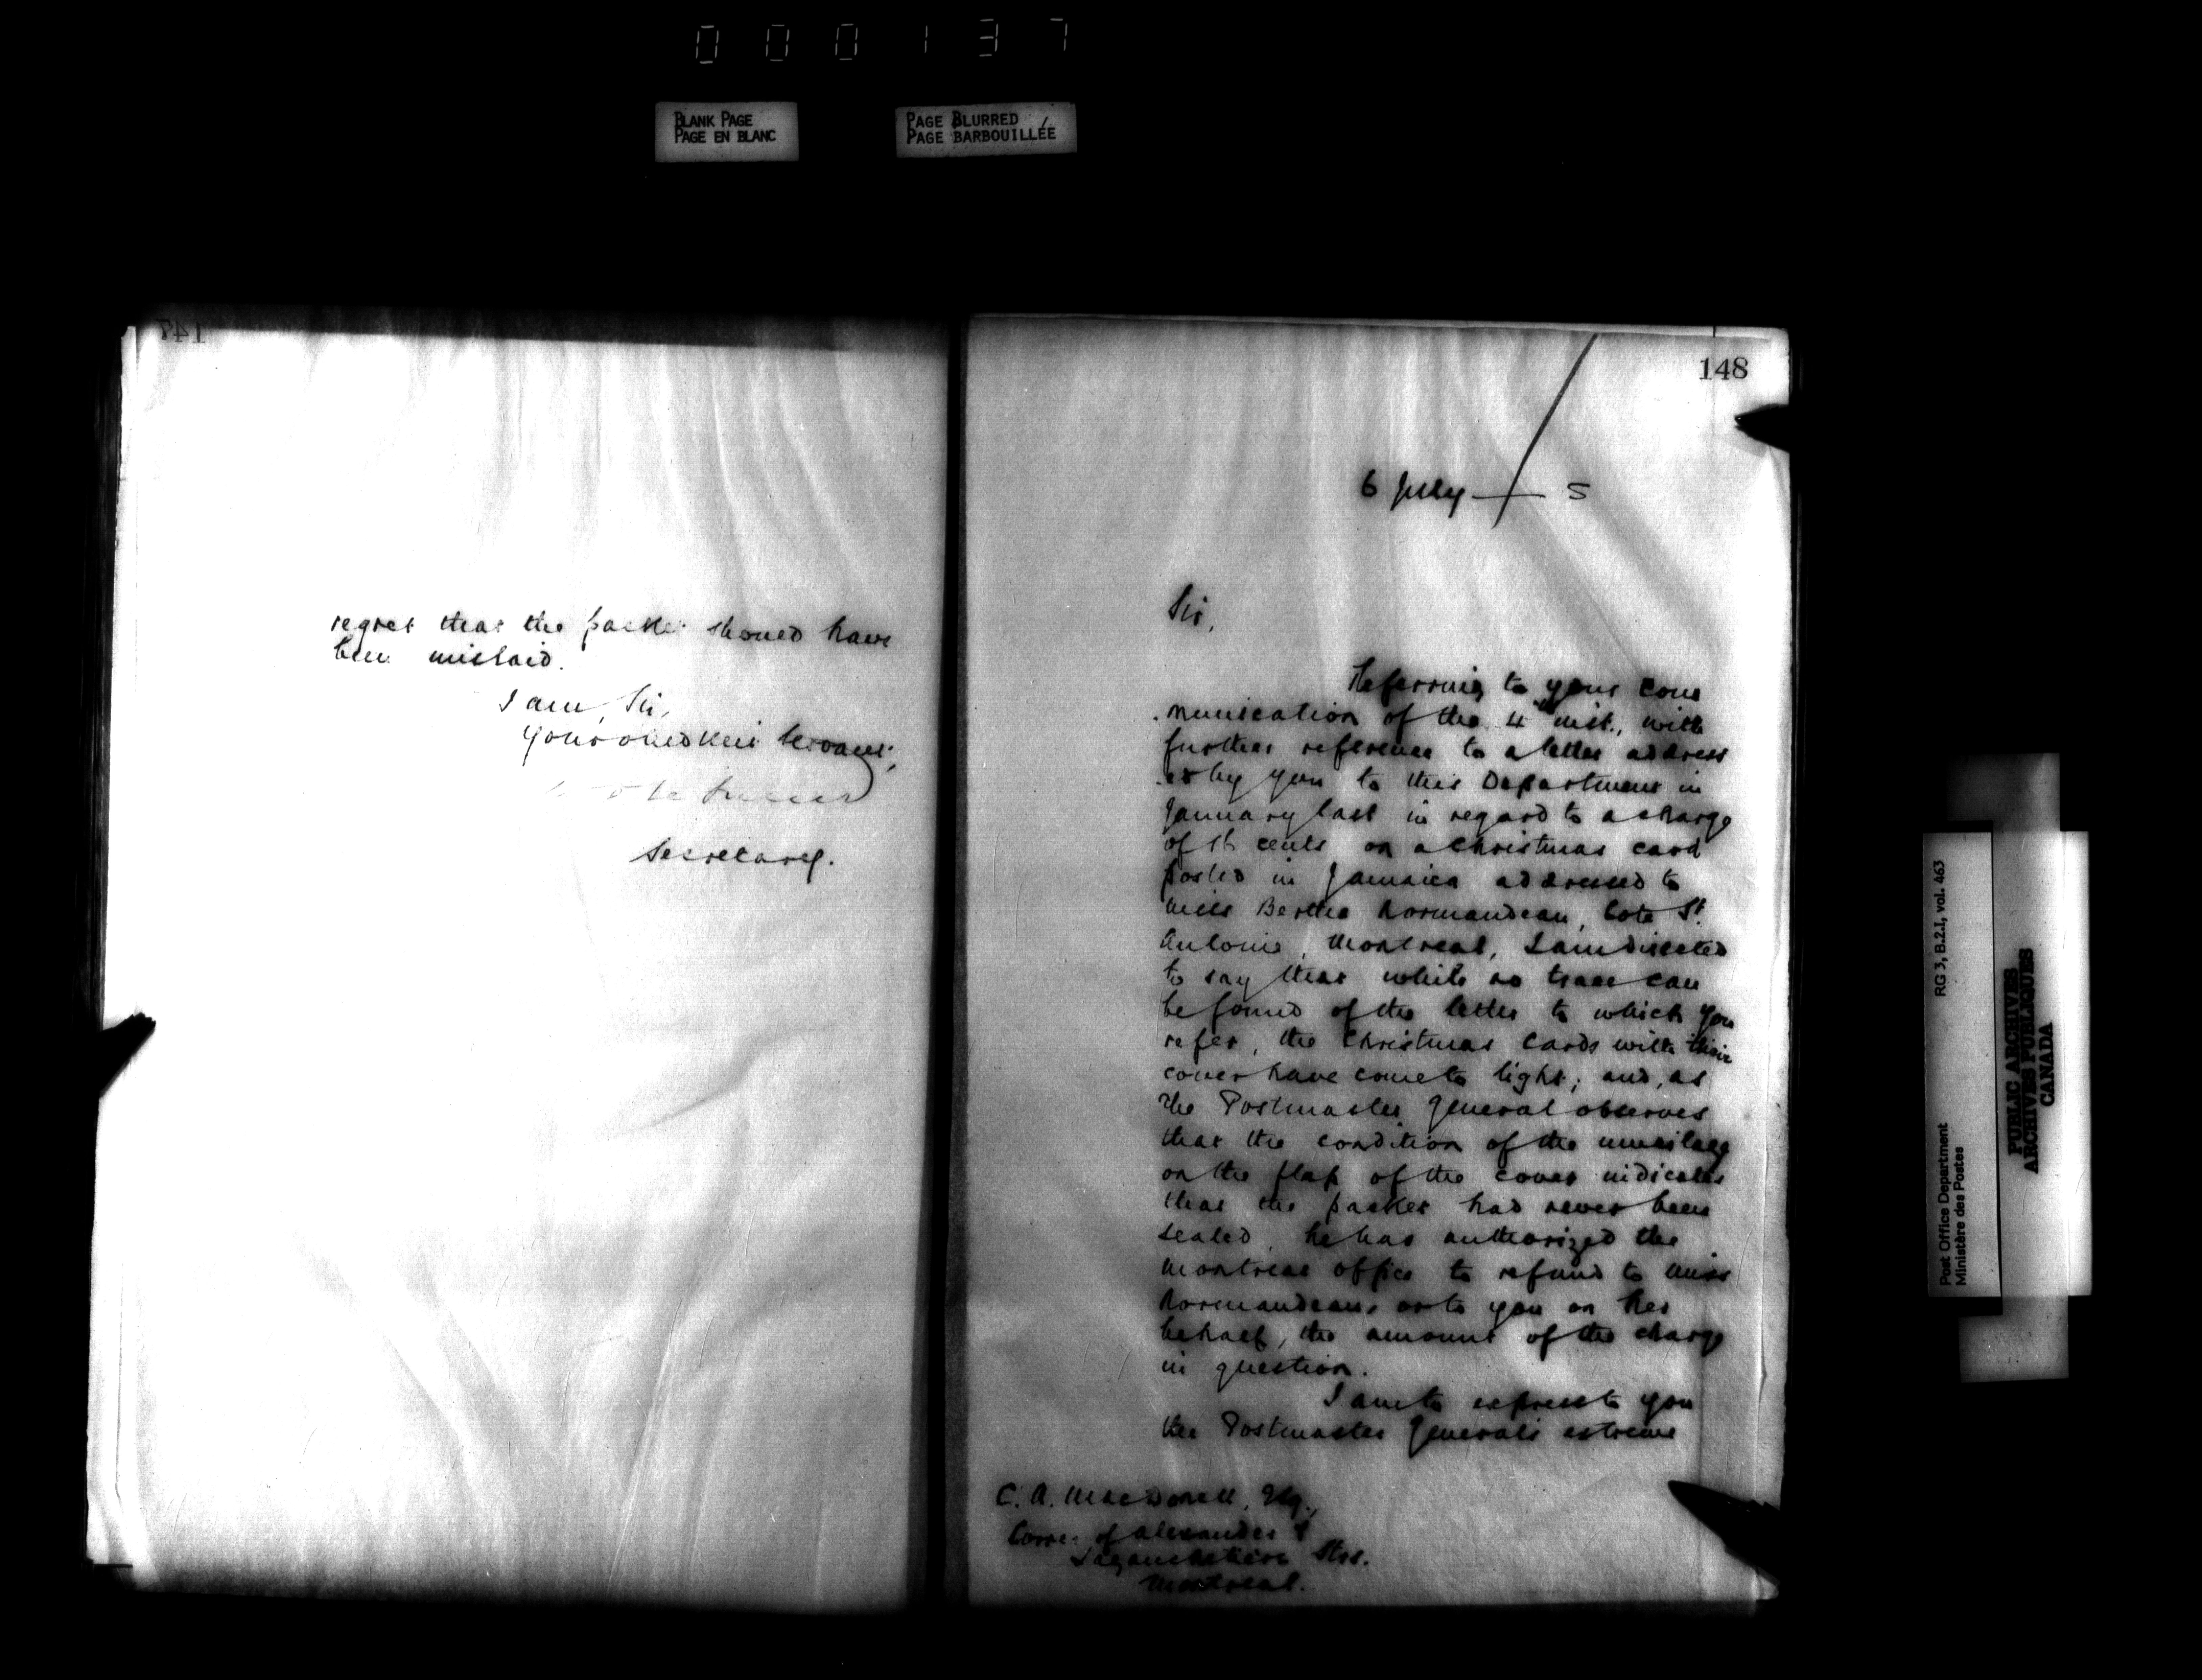 000137
BLANK PAGE
PAGE EN BLANC
PAGE BLURRED
PAGE BARBOUILLÉE
147
regret that the packet should have
been mislaid.
I am, Sir,
Your obedient servant,
Secretary.
148
6 July 5
Sir,
Referring to your com
munication of the 4th inst., with
further reference to a letter address
ed by you to this Department in
January last in regard to a charge
of 16 cents on a Christmas card
posted in Jamaica addressed to
Miss Bertha Normandeau, Cote St.
Antoine, Montreal, I am directed
to say that while no trace can
be found of the letter to which you
refer, the Christmas cards with their
cover have come to light; and, as
the Postmaster General observes
that the condition of the mucilage
on the flap of the cover indicates
that the packet had never been
sealed, he has authorized the
Montreal office to refund to Miss
Normandeau, or to you on her
behalf, the amount of the charge
in question.
I am to express to you
the Postmaster General's extreme
C. A. MacDonell, Esq.,
Corner of Alexander &
Lagauchetière Sts.
Montreal.
RG 3, B.2.1, vol. 463
Post Office Department
Ministère des Postes
PUBLIC ARCHIVES
ARCHIVES PUBLIQUES
CANADA